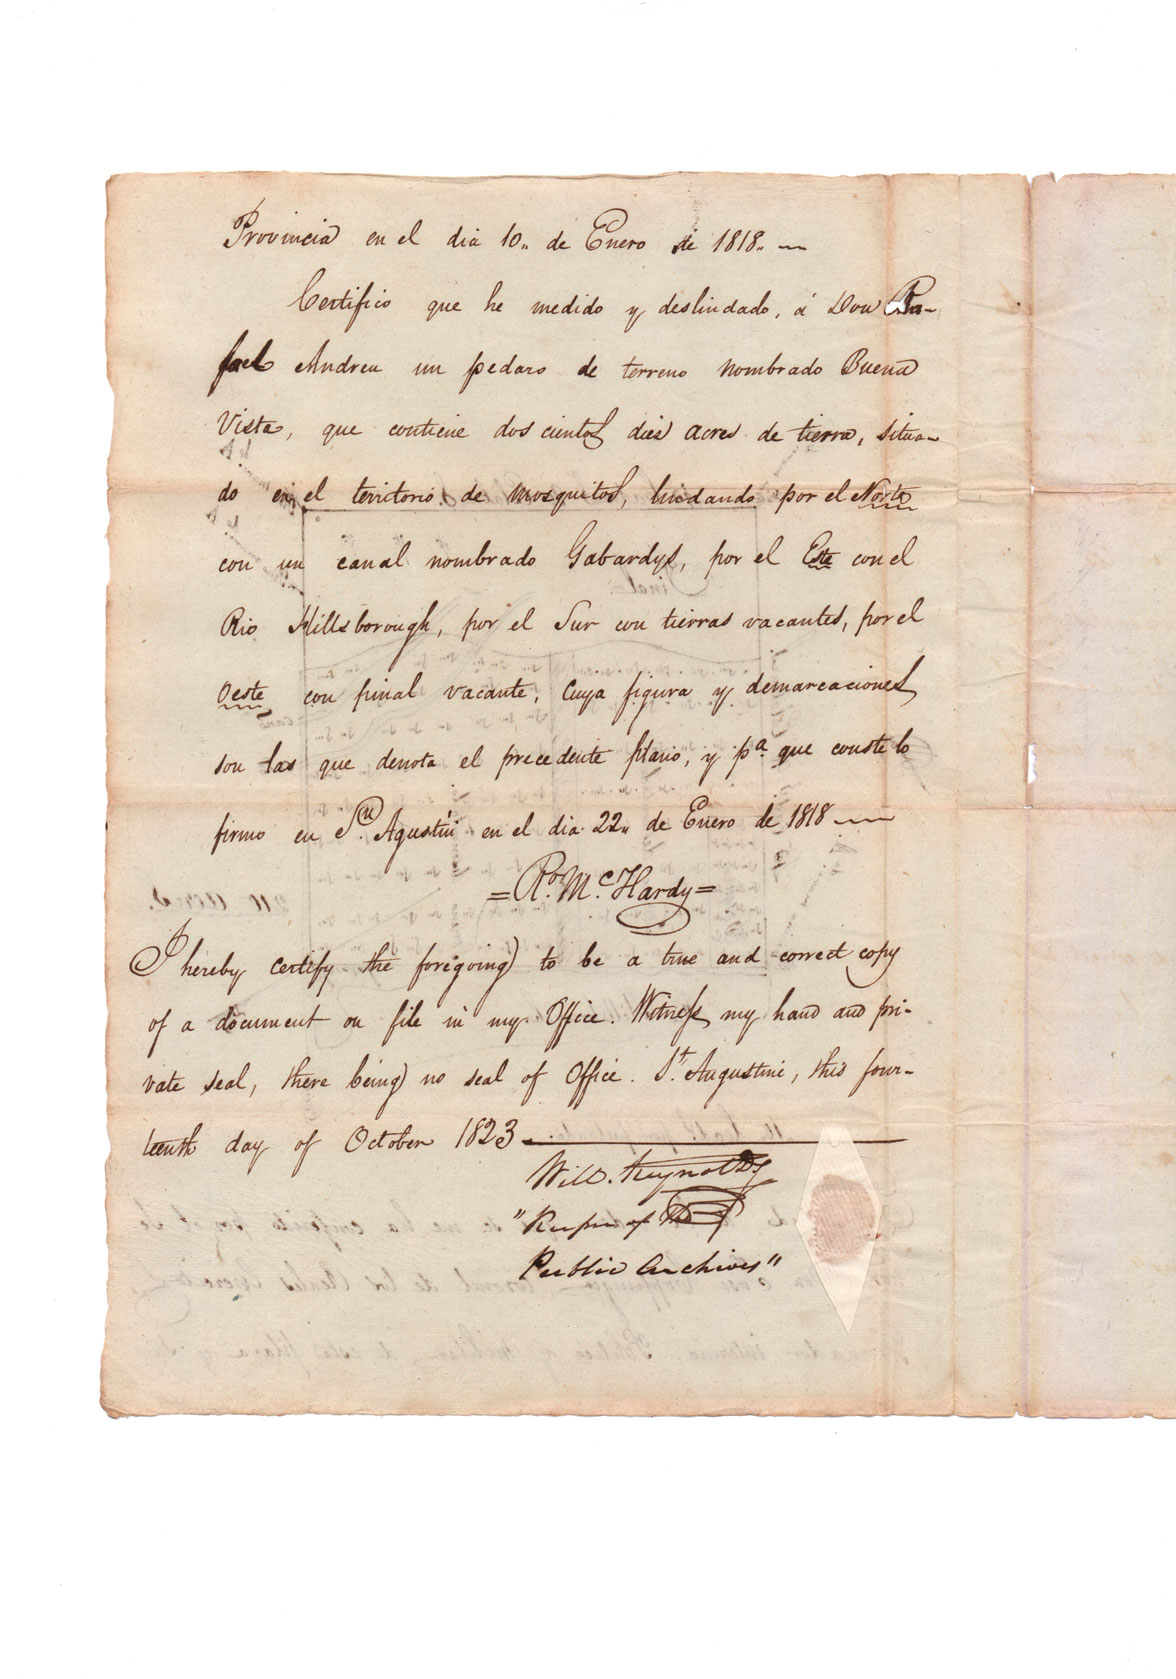 Provincia en el dia 10,, de Enero de 1818,, —
Certifico que he medido y deslindado, á Don Ra-
fael Andreu un pedaso de terreno nombrado Buena
Vista, que contiene dos cientos dies acres de tierra, situa-
do en el territorio de Mosquitos, lindando por el Norte
con un canal nombrado Gabardys, por el Este con el
Rio Hillsborough, por el Sur con tierras vacantes, por el
Oeste con pinal vacante, cuya figura y demarcaciones
son las que denota el precedente plano, y pa. que conste lo
firmo en Sn. Agustin en el dia 22,, de Enero de 1818 —
= Ro. McHardy =
I hereby certify the foregoing to be a true and correct copy
of a document on file in my Office. Witness my hand and pri-
vate seal, there being no seal of Office. St. Augustine, this four-
teenth day of October 1823 —
Will. Reynolds
"Keeper of the
Public Archives"
210 acres.